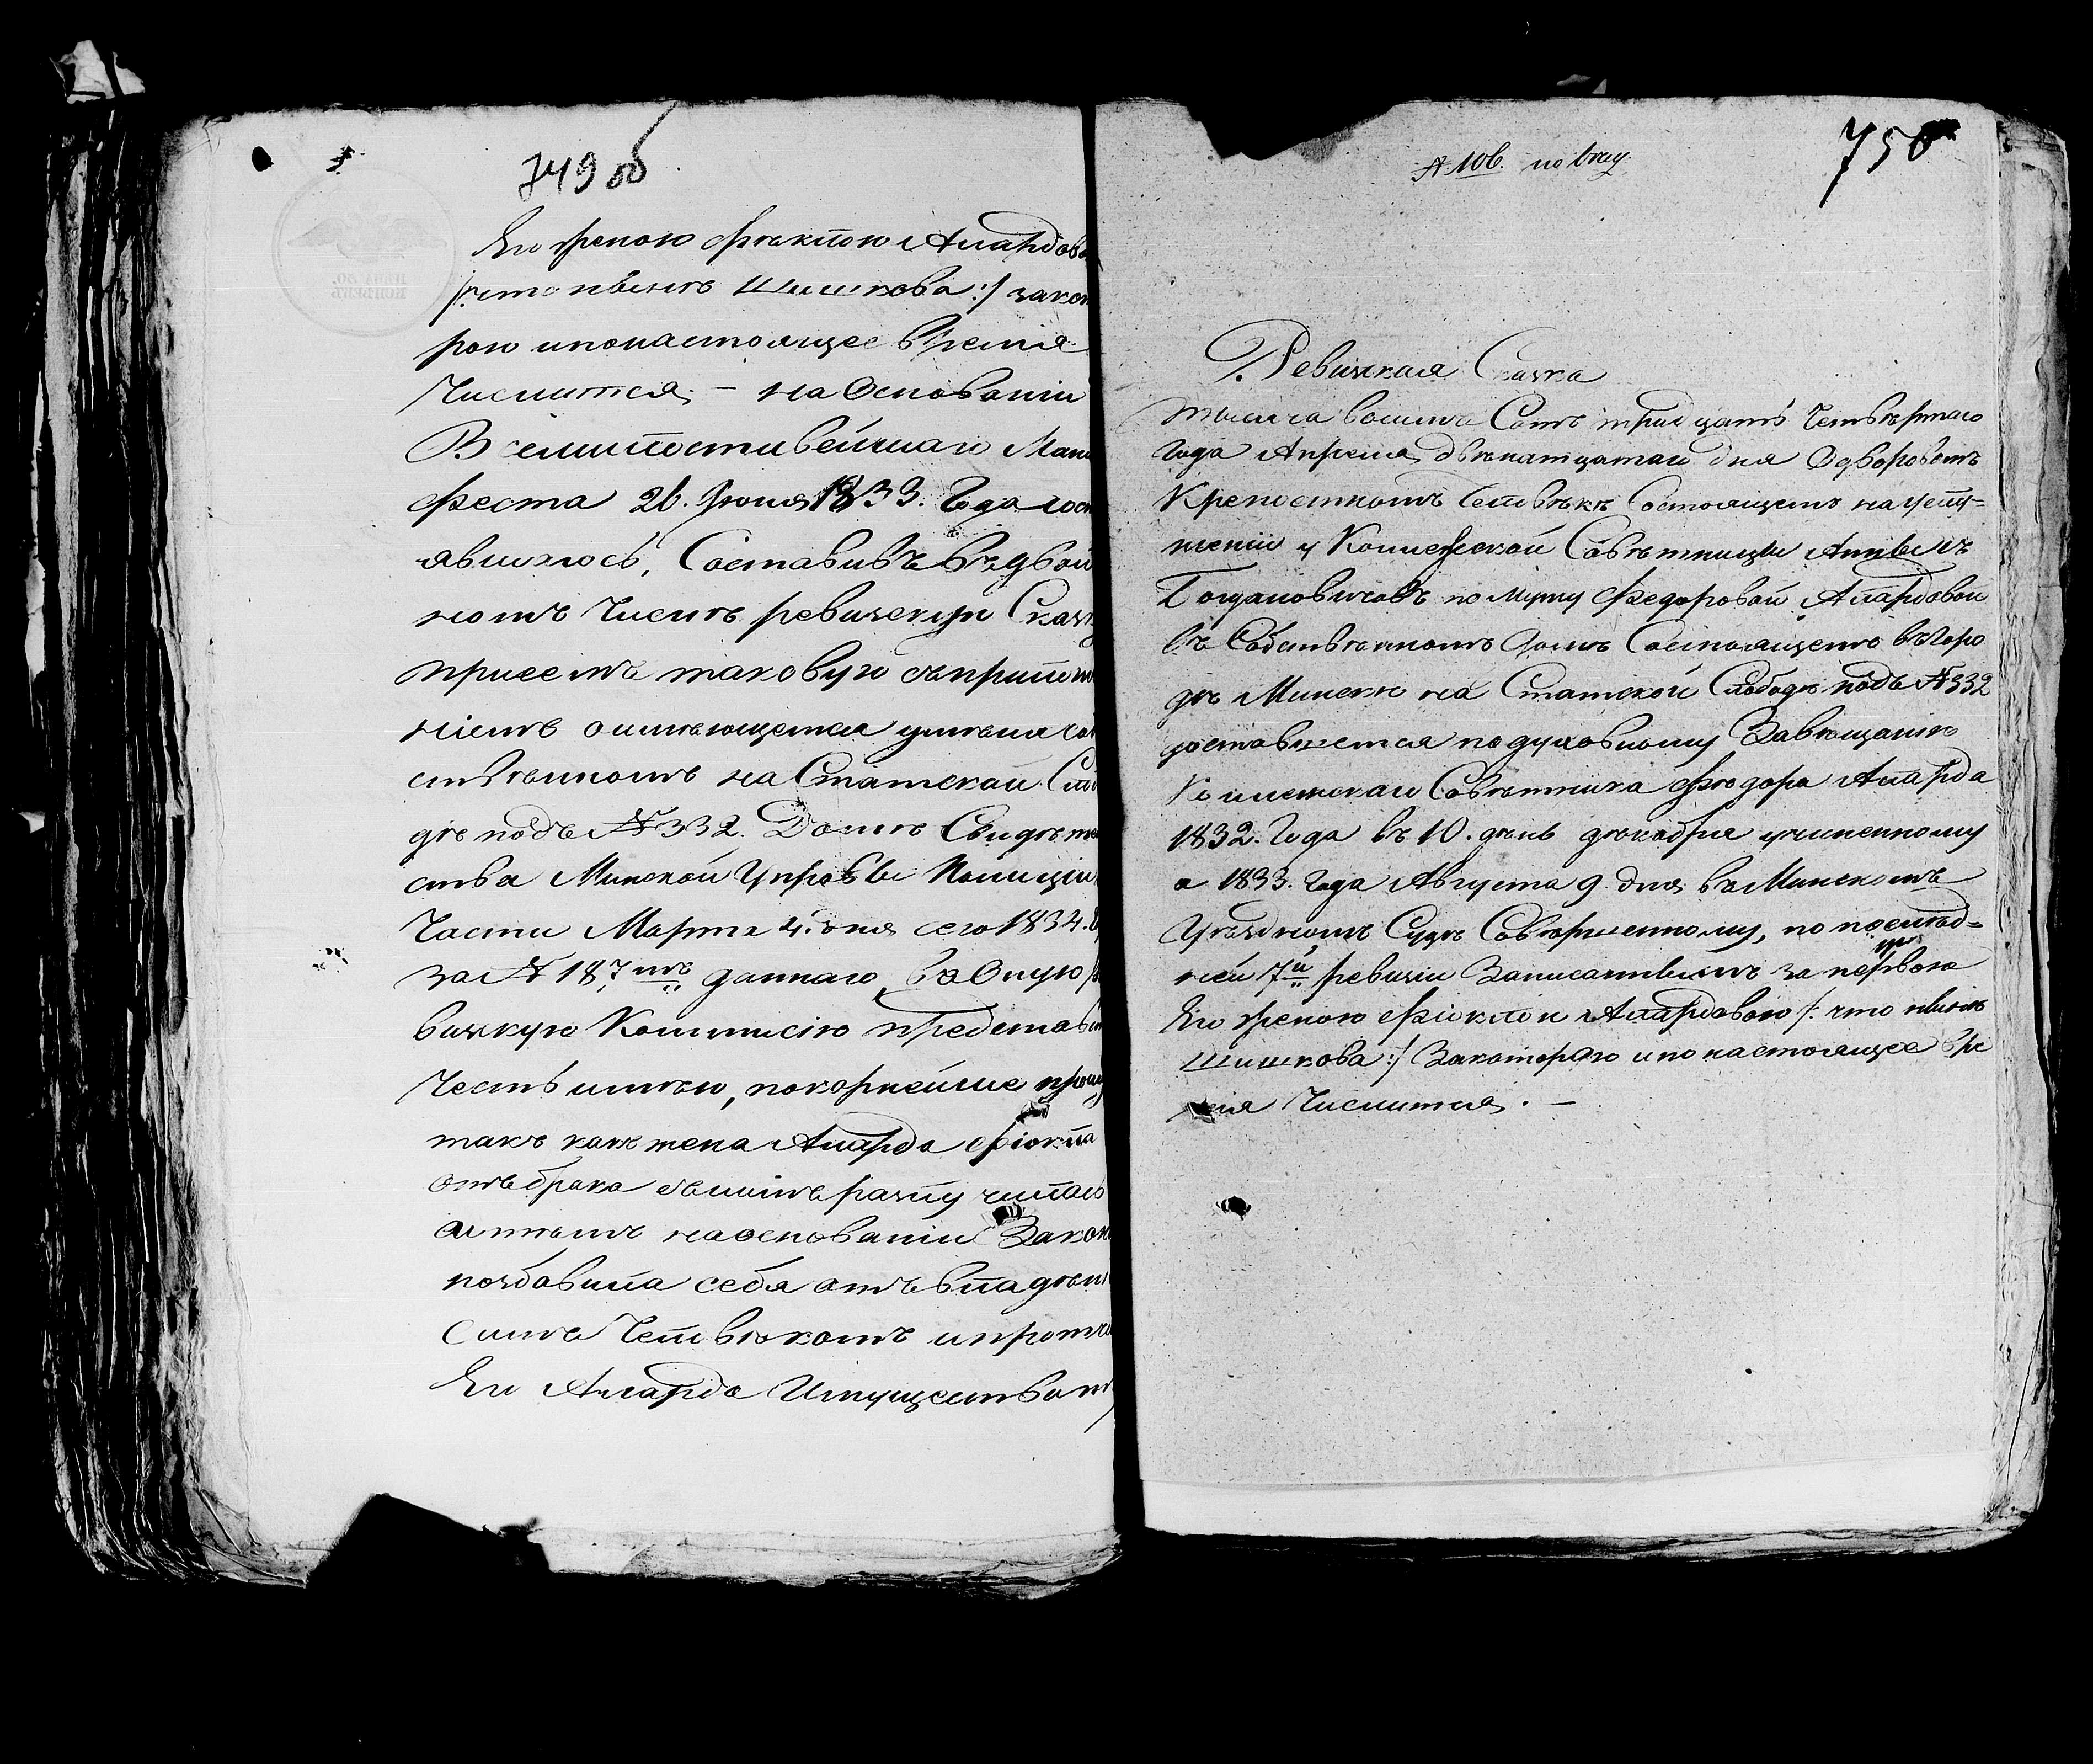 749 об
Его женою Феклою Алардово
/: что нынѣ Шишкова :/ закон
рою ипонастоящее время
Числится, — на Основаніи
Всемилостивейшаго Мани
феста 26. Іюня 1833. Года сос
явшагось, Составивъ въ двой
номъ Числѣ ревизскую Сказк
при семъ таковую
о имѣющемся
ственномъ на Статской Сло
дѣ подъ № 332. Домѣ Свидѣте
ства Минской Управы Полиціи
Части Марта 4. дня сего 1834.
за № 187,мъ даннаго, въ Оную р
визкую Коммисію представи
Честь имѣю, покорнейше прошу
такъ какъ жена Аларда Фіокла
отъ брака
наосновании Закон
позбавила себя отъ владѣні
симъ Человѣкомъ и протчи
Его Аларда Имуществом
№ 106. по
750
Ревизкая Сказка
тысяча восимъ Сотъ тридцать Четвертаго
Года Апреля двенатцатаго дня Одворовомъ
Крепостномъ Человѣкѣ Состоящемъ науслу-
женіи у Коллежской Совѣтницы Анны съ
Богдановичовъ по мужу Федоровой Алардовой
въ Собственномъ Домѣ Состоящемъ въ Горо
дѣ Минскѣ на Статской Слободѣ подъ № 332
доставшемся подуховному Завѣщанію
Коллежскаго Совѣтника Фіодора Аларда
1832. Года въ 10. день декабря учиненному
а 1833. Года Августа 9 дня въ Минскомъ
Уѣздномъ Судѣ Совершенному, по послѣд-
ней 7й ревизіи Записаннымъ за первою
Его женою Фіоклою Алардовою /: что нынѣ
Шишкова :/ Закоторою и по настоящее вре
мя Числится. —